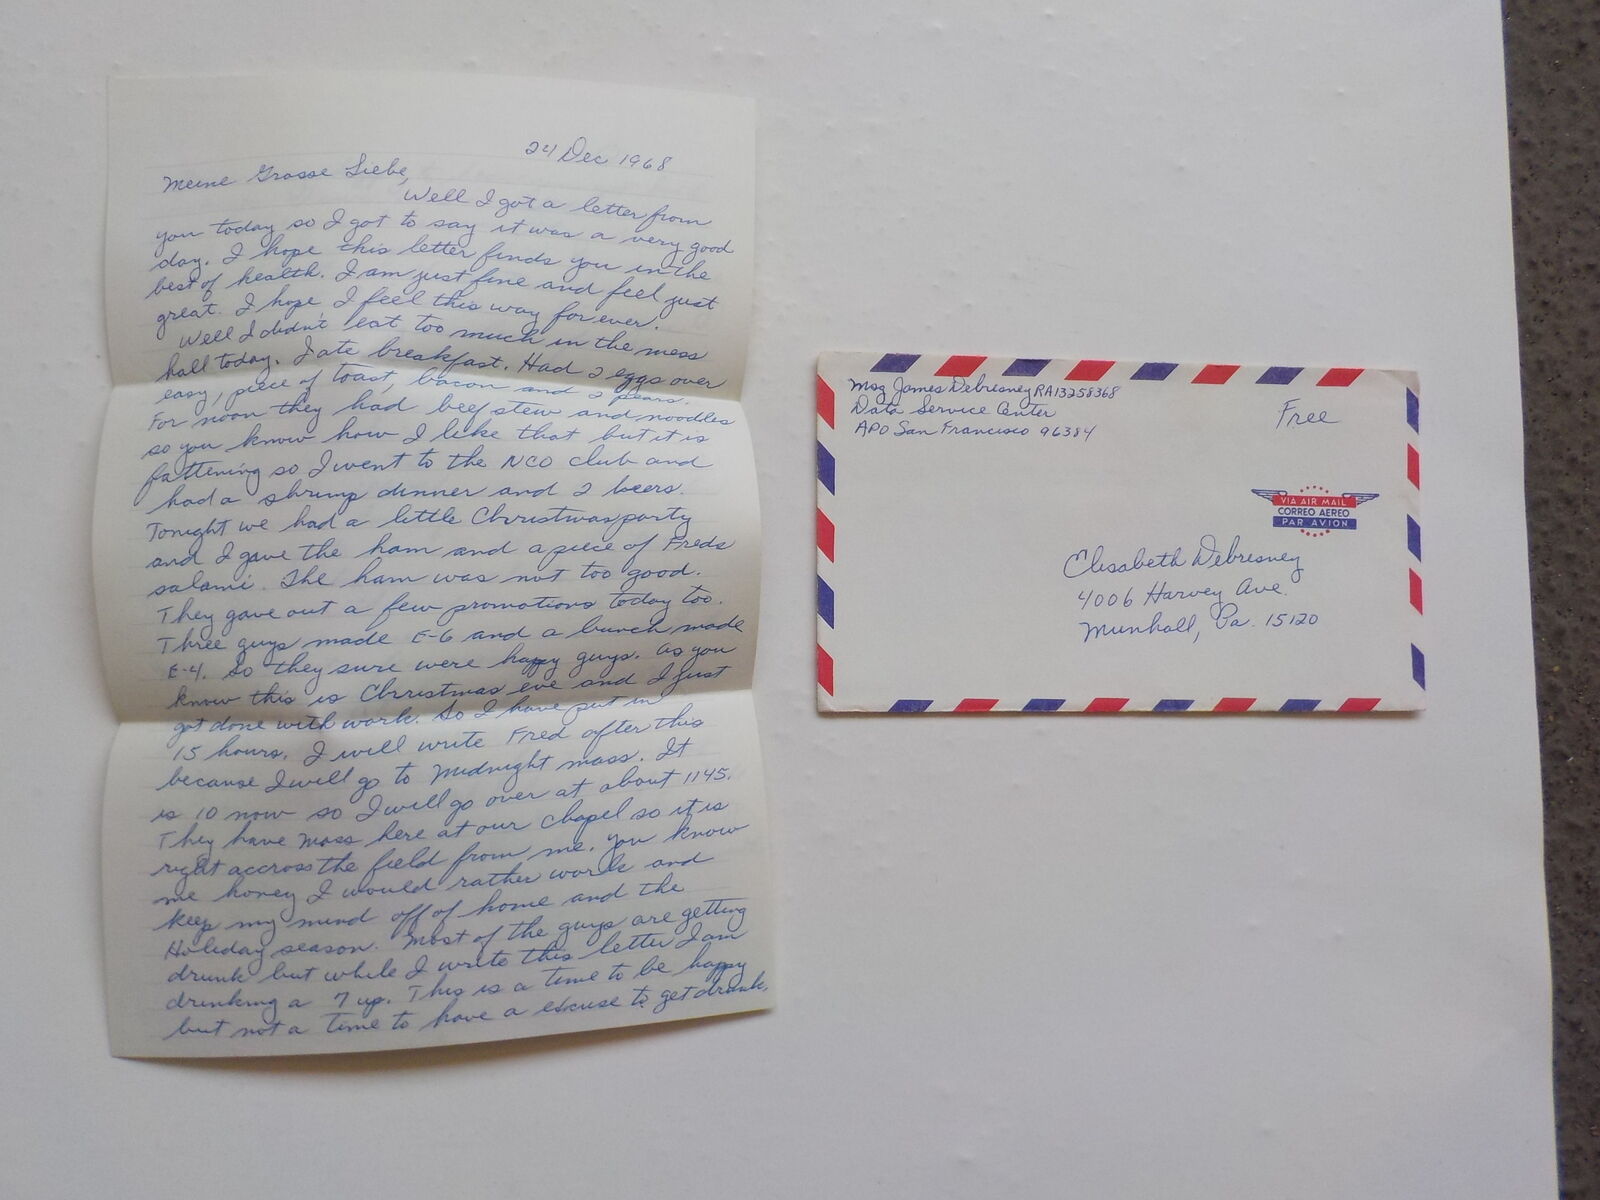 24 Dec 1968
Meine Grosse Liebe,
Well I got a letter from
you today so I got to say it was a very good
day. I hope this letter finds you in the
best of health. I am just fine and feel just
great. I hope I feel this way for ever.
Well I didn't eat too much in the mess
hall today. I ate breakfast. Had 2 eggs over
easy, piece of toast, bacon and 2 pears.
For noon they had beef stew and noodles
so you know how I like that but it is
fattening so I went to the NCO club and
had a shrimp dinner and 2 beers.
Tonight we had a little Christmas party
and I gave the ham and a piece of Freds
salami. The ham was not too good.
They gave out a few promotions today too.
Three guys made E-6 and a bunch made
E-4. So they sure were happy guys. As you
know this is Christmas eve and I just
got done with work. So I have put in
15 hours. I will write Fred after this
because I will go to Midnight mass. It
is 10 now so I will go over at about 1145.
They have Mass here at our Chapel so it is
right accross the field from me. You know
me honey I would rather work and
keep my mind off of home and the
Holiday season. Most of the guys are getting
drunk but while I write this letter I am
drinking a 7 up. This is a time to be happy
but not a time to have a excuse to get drunk.
Msg James Debresney RA13258368
Data Service Center
APO San Francisco 96384
Free
VIA AIR MAIL
CORREO AEREO
PAR AVION
Elisabeth Debresney
4006 Harvey Ave.
Munhall, Pa. 15120